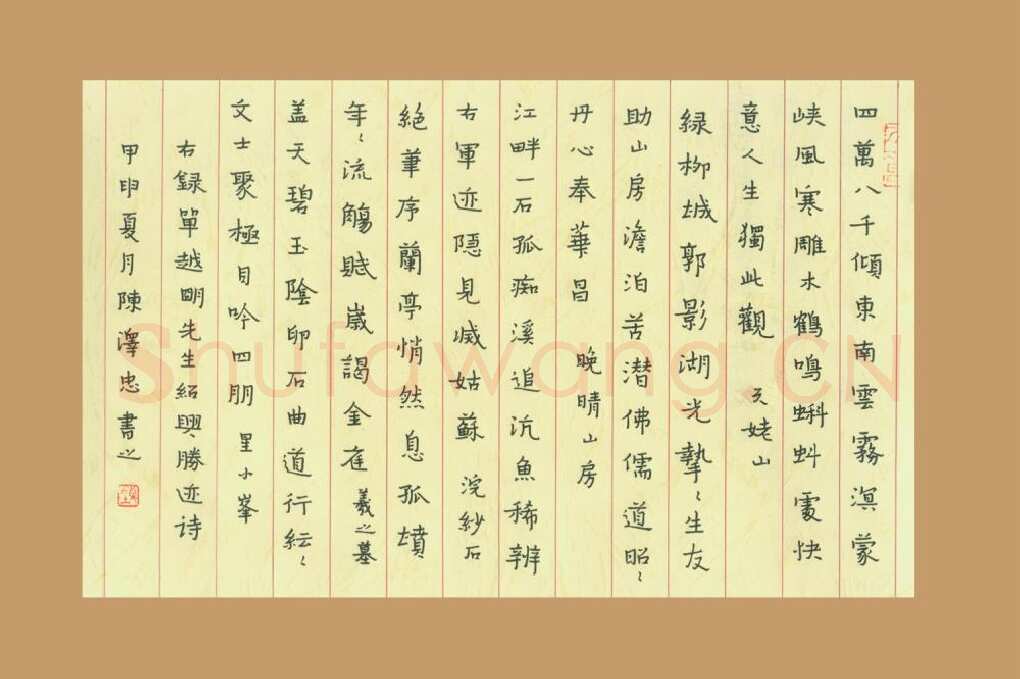 四萬八千傾東南雲霧溟蒙
峡風寒雕木鶴鳴蝌蚪霎快
意人生獨此觀 天姥山
緑柳城郭影湖光摯〻生友
助山房澹泊苦潜佛儒道昭〻
丹心奉華昌 晚晴山房
江畔一石孤痴溪追沆魚稀辨
右軍迹隠見减姑蘇 浣紗石
絕筆序蘭亭悄然息孤墳
年〻流觴賦嵗謁金庭 羲之墓
盖天碧玉陰卯石曲道行紜〻
文士聚極目吟四朋 里小峯
右録單越明先生紹興勝迹诗
甲申夏月陳澤忠書之
Shufawang.CN